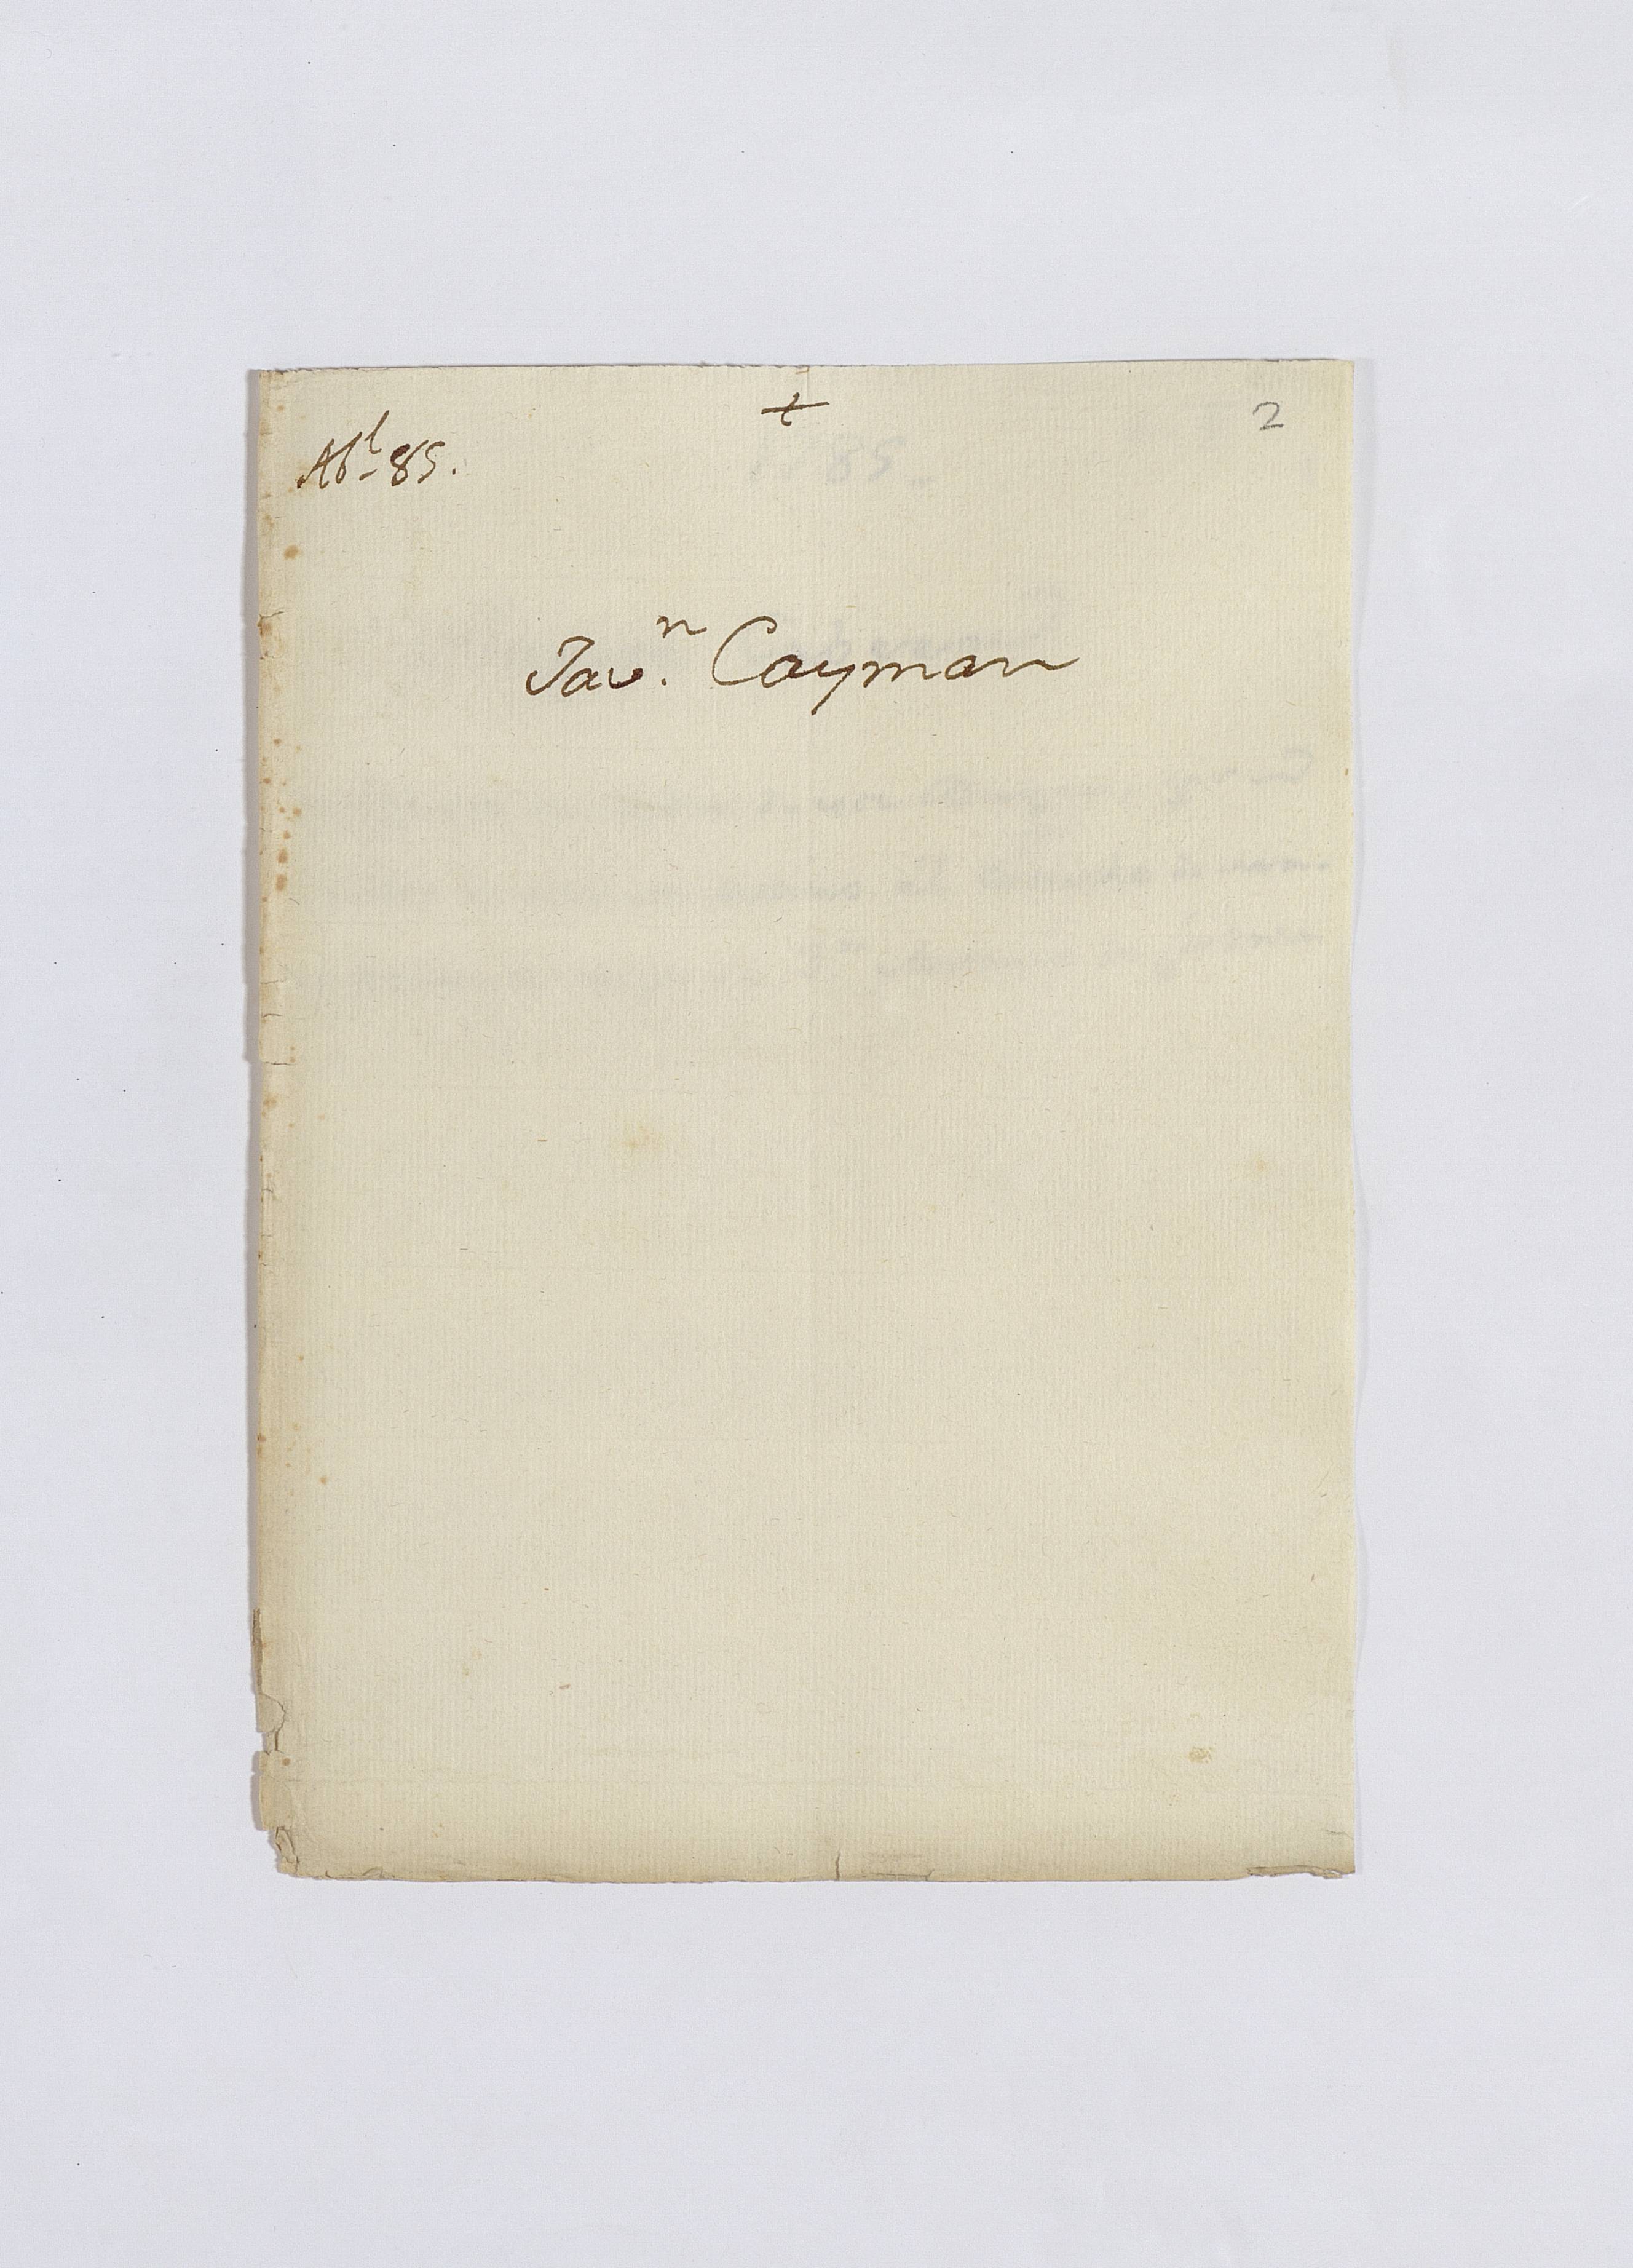 +
2
Ab.l 85.
Jav.n Cayman